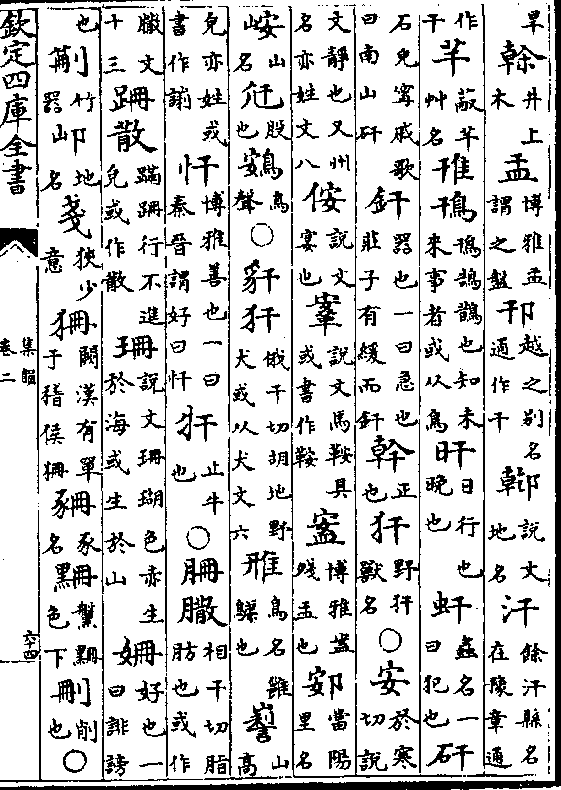 旱
榦井上木
盂博雅盂謂之盤
邗越之别名通作干
鄿說文地名
汗餘汗縣名在豫章通作干
芉蔽芉艸名
鳱鳱鵠鵲也知未來事者或从鳥
旰日行也晚也
虷蟲名一曰犯也
矸石皃甯戚歌曰南山矸
釬器也一曰急也莊子有緩而釬
幹正也
犴野犴獸名
○安於寒切說文靜也又州名亦姓文八
侒說文宴也
鞌說文馬鞍具或書作鞍
䀂博雅盞㼛盂也
郔當陽里名
峖山名
㐹股也
鴳鳥聲
○豻犴俄干切胡地野犬或从犬文六
雃鳥名雝䳭也
山高皃亦姓或書作
忓博雅善也一曰秦晉謂好曰忓
扞止牛也
○䏝䐹相干切脂肪也或作臘文十三
跚散蹣跚行不進皃或作散
珊說文珊瑚色赤生於海或生於山
姍好也一曰誹謗也
竹器
地名
戔狹少意
狦闕漢有單于稽侯狦
豕名
下色
刪削也
○
欽定四庫全書
集韻
卷二
六十四